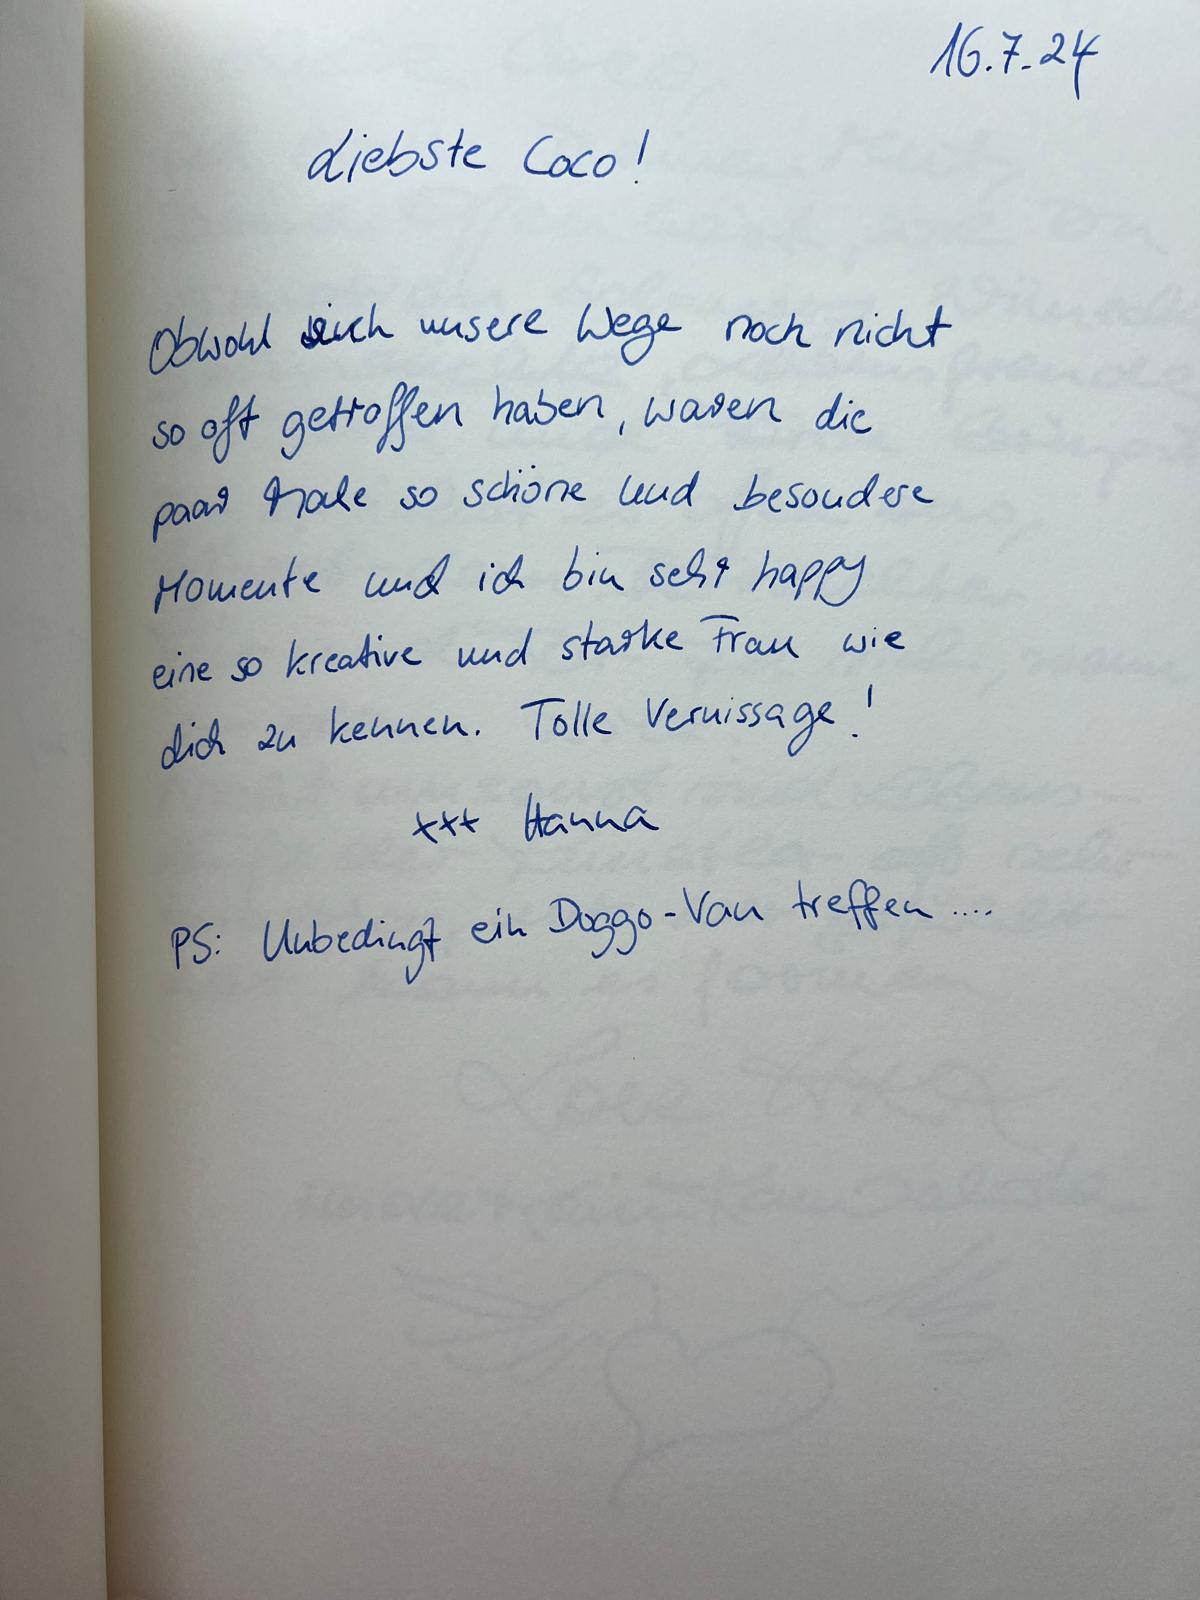 16.7.24
Liebste Coco!
Obwohl sich unsere Wege noch nicht
so oft getroffen haben, waren die
paar Male so schöne und besondere
Momente und ich bin sehr happy
eine so kreative und starke Frau wie
dich zu kennen. Tolle Vernissage!
xxx Hanna
PS: Unbedingt ein Doggo-Van treffen ....